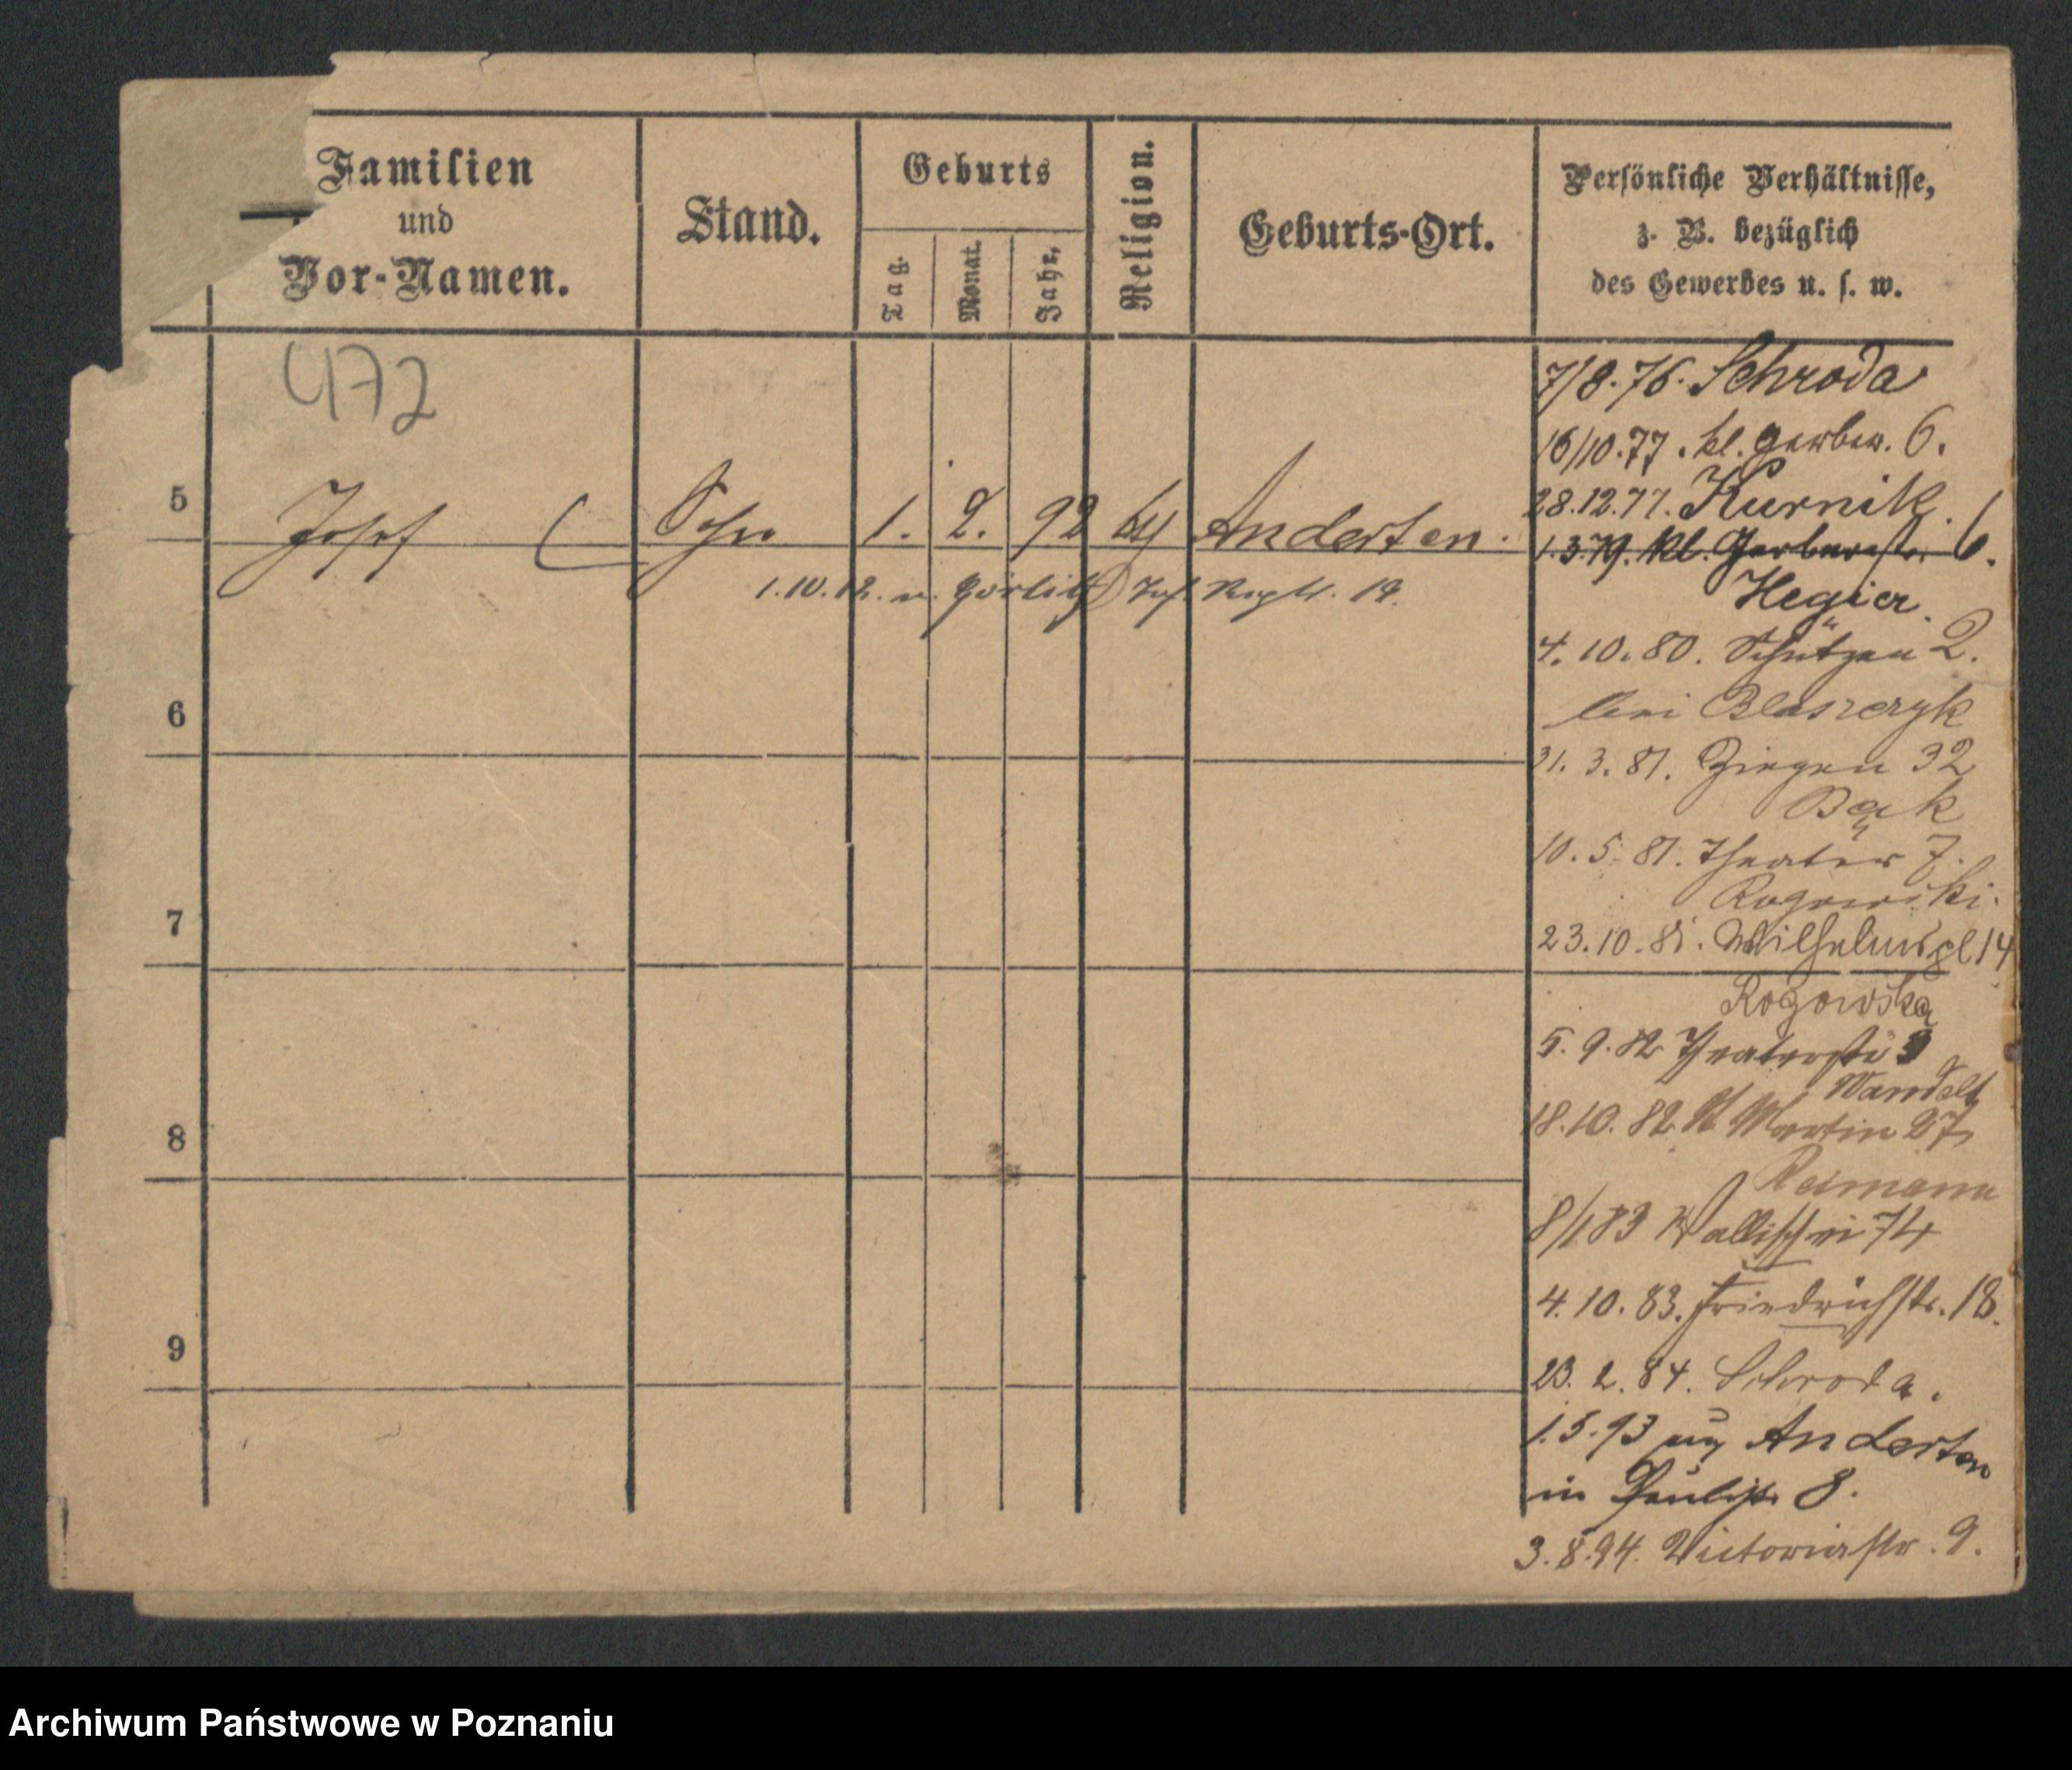 Familien
und
Vor-Namen.
Stand.
Geburts
Tag.
Monat.
Jahr.
Religion.
Geburts-Ort.
Persönliche Verhältnisse,
z. B. bezüglich
des Gewerbes u. s. w.
472
5 Josef Sohn 1. 2. 92 Anderten.
1.10.12. n. Görlitz Inf. Regtt. 19.
6
7
8
9
7/8.76. Schroda
16/10.77. kl. Gerber. 6.
28.12.77. Kurnik.
1.3.79. Kl. Gerberstr. 6.
Hegier.
4.10.80. Schützen 2.
bei Blaszczyk
31.3.81. Ziegen 32
Bąk
10.5.81. Theater 7.
Rogowski.
23.10.81. Wilhelmspl 14
Rogowska
5.9.82 Theaterstr 3
Wandelt
18.10.82 St Martin 27
Reimann
8/1 83 Wallischei 74
4.10.83. Friedrichstr. 18.
23.2.84. Schroda.
1.5.93 aus Anderten
in Paulist. 8.
3.8.94. Victoriastr. 9.
Archiwum Państwowe w Poznaniu